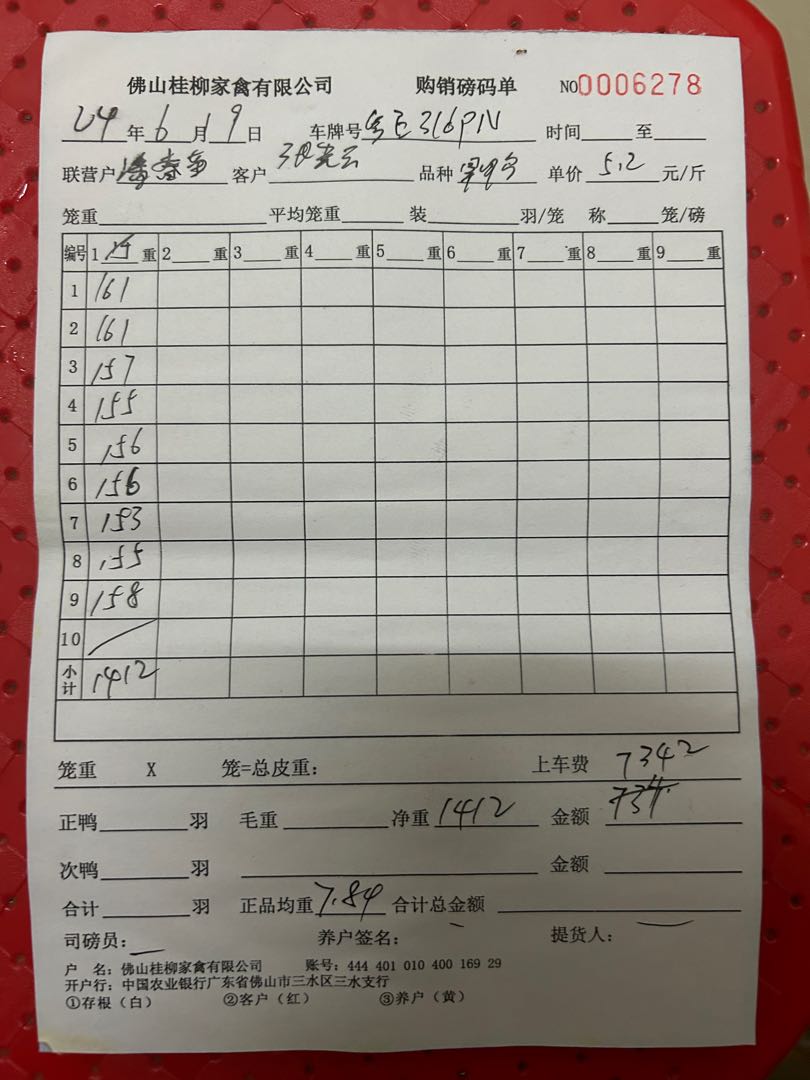 佛山桂柳家禽有限公司 购销磅码单 NO0006278
24年6月19日 车牌号 316PN 时间 至
联营户 客户 品种 单价5.2元/斤
笼重 平均笼重 装 羽/笼 称 笼/磅
编号 1 重 2 重 3 重 4 重 5 重 6 重 7 重 8 重 9 重
1 161
2 161
3 157
4 155
5 156
6 156
7 153
8 155
9 158
10
小计 1412
笼重 X 笼=总皮重: 上车费 7342
正鸭 羽 毛重 净重1412 金额
次鸭 羽 金额
合计 羽 正品均重7.84 合计总金额
司磅员: 养户签名: 提货人:
户 名: 佛山桂柳家禽有限公司 账号: 444 401 010 400 169 29
开户行: 中国农业银行广东省佛山市三水区三水支行
①存根(白) ②客户(红) ③养户(黄)